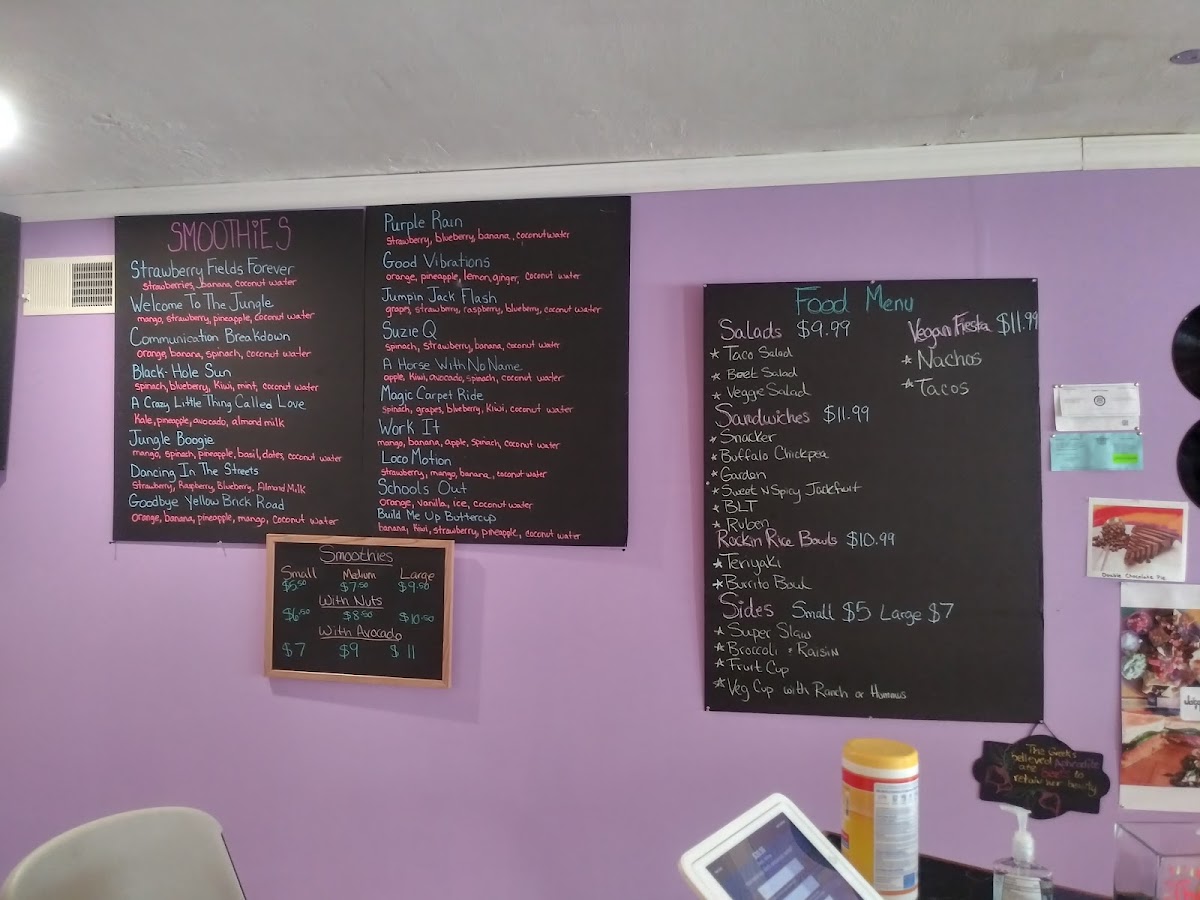 SMOOTHiES
Strawberry Fields Forever
strawberries, banana, coconut water
Welcome To The Jungle
mango, strawberry, pineapple, coconut water
Communication Breakdown
orange, banana, spinach, coconut water
Black-Hole Sun
spinach, blueberry, Kiwi, mint, coconut water
A Crazy Little Thing Called Love
Kale, pineapple, avocado, almond milk
Jungle Boogie
mango, spinach, pineapple, basil, dates, coconut water
Dancing In The Streets
Strawberry, Raspberry, Blueberry, Almond Milk
Goodbye Yellow Brick Road
Orange, banana, pineapple, mango, coconut water
Purple Rain
strawberry, blueberry, banana, coconut water
Good Vibrations
orange, pineapple, lemon, ginger, coconut water
Jumpin Jack Flash
grapes, strawberry, raspberry, blueberry, coconut water
Suzie Q
spinach, strawberry, banana, coconut water
A Horse With No Name
apple, Kiwi, avocado, spinach, coconut water
Magic Carpet Ride
spinach, grapes, blueberry, Kiwi, coconut water
Work It
mango, banana, apple, spinach, coconut water
Loco Motion
strawberry, mango, banana, coconut water
Schools Out
orange, vanilla, ice, coconut water
Build Me Up Buttercup
banana, Kiwi, strawberry, pineapple, coconut water
Smoothies
Small Medium Large
$5.50 $7.50 $9.50
With Nuts
$6.50 $8.50 $10.50
With Avocado
$7 $9 $11
Food Menu
Salads $9.99
* Taco Salad
* Beet Salad
* Veggie Salad
Sandwiches $11.99
* Snacker
* Buffalo Chickpea
* Garden
* Sweet N Spicy Jackfruit
* BLT
* Ruben
Rockin Rice Bowls $10.99
* Teriyaki
* Burrito Bowl
Sides Small $5 Large $7
* Super Slaw
* Broccoli & Raisin
* Fruit Cup
* Veg Cup with Ranch or Hummus
Vegan Fiesta $11.99
* Nachos
* Tacos
Double Chocolate Pie
The Greeks
believed Aphrodite
ate beets to
retain her beauty